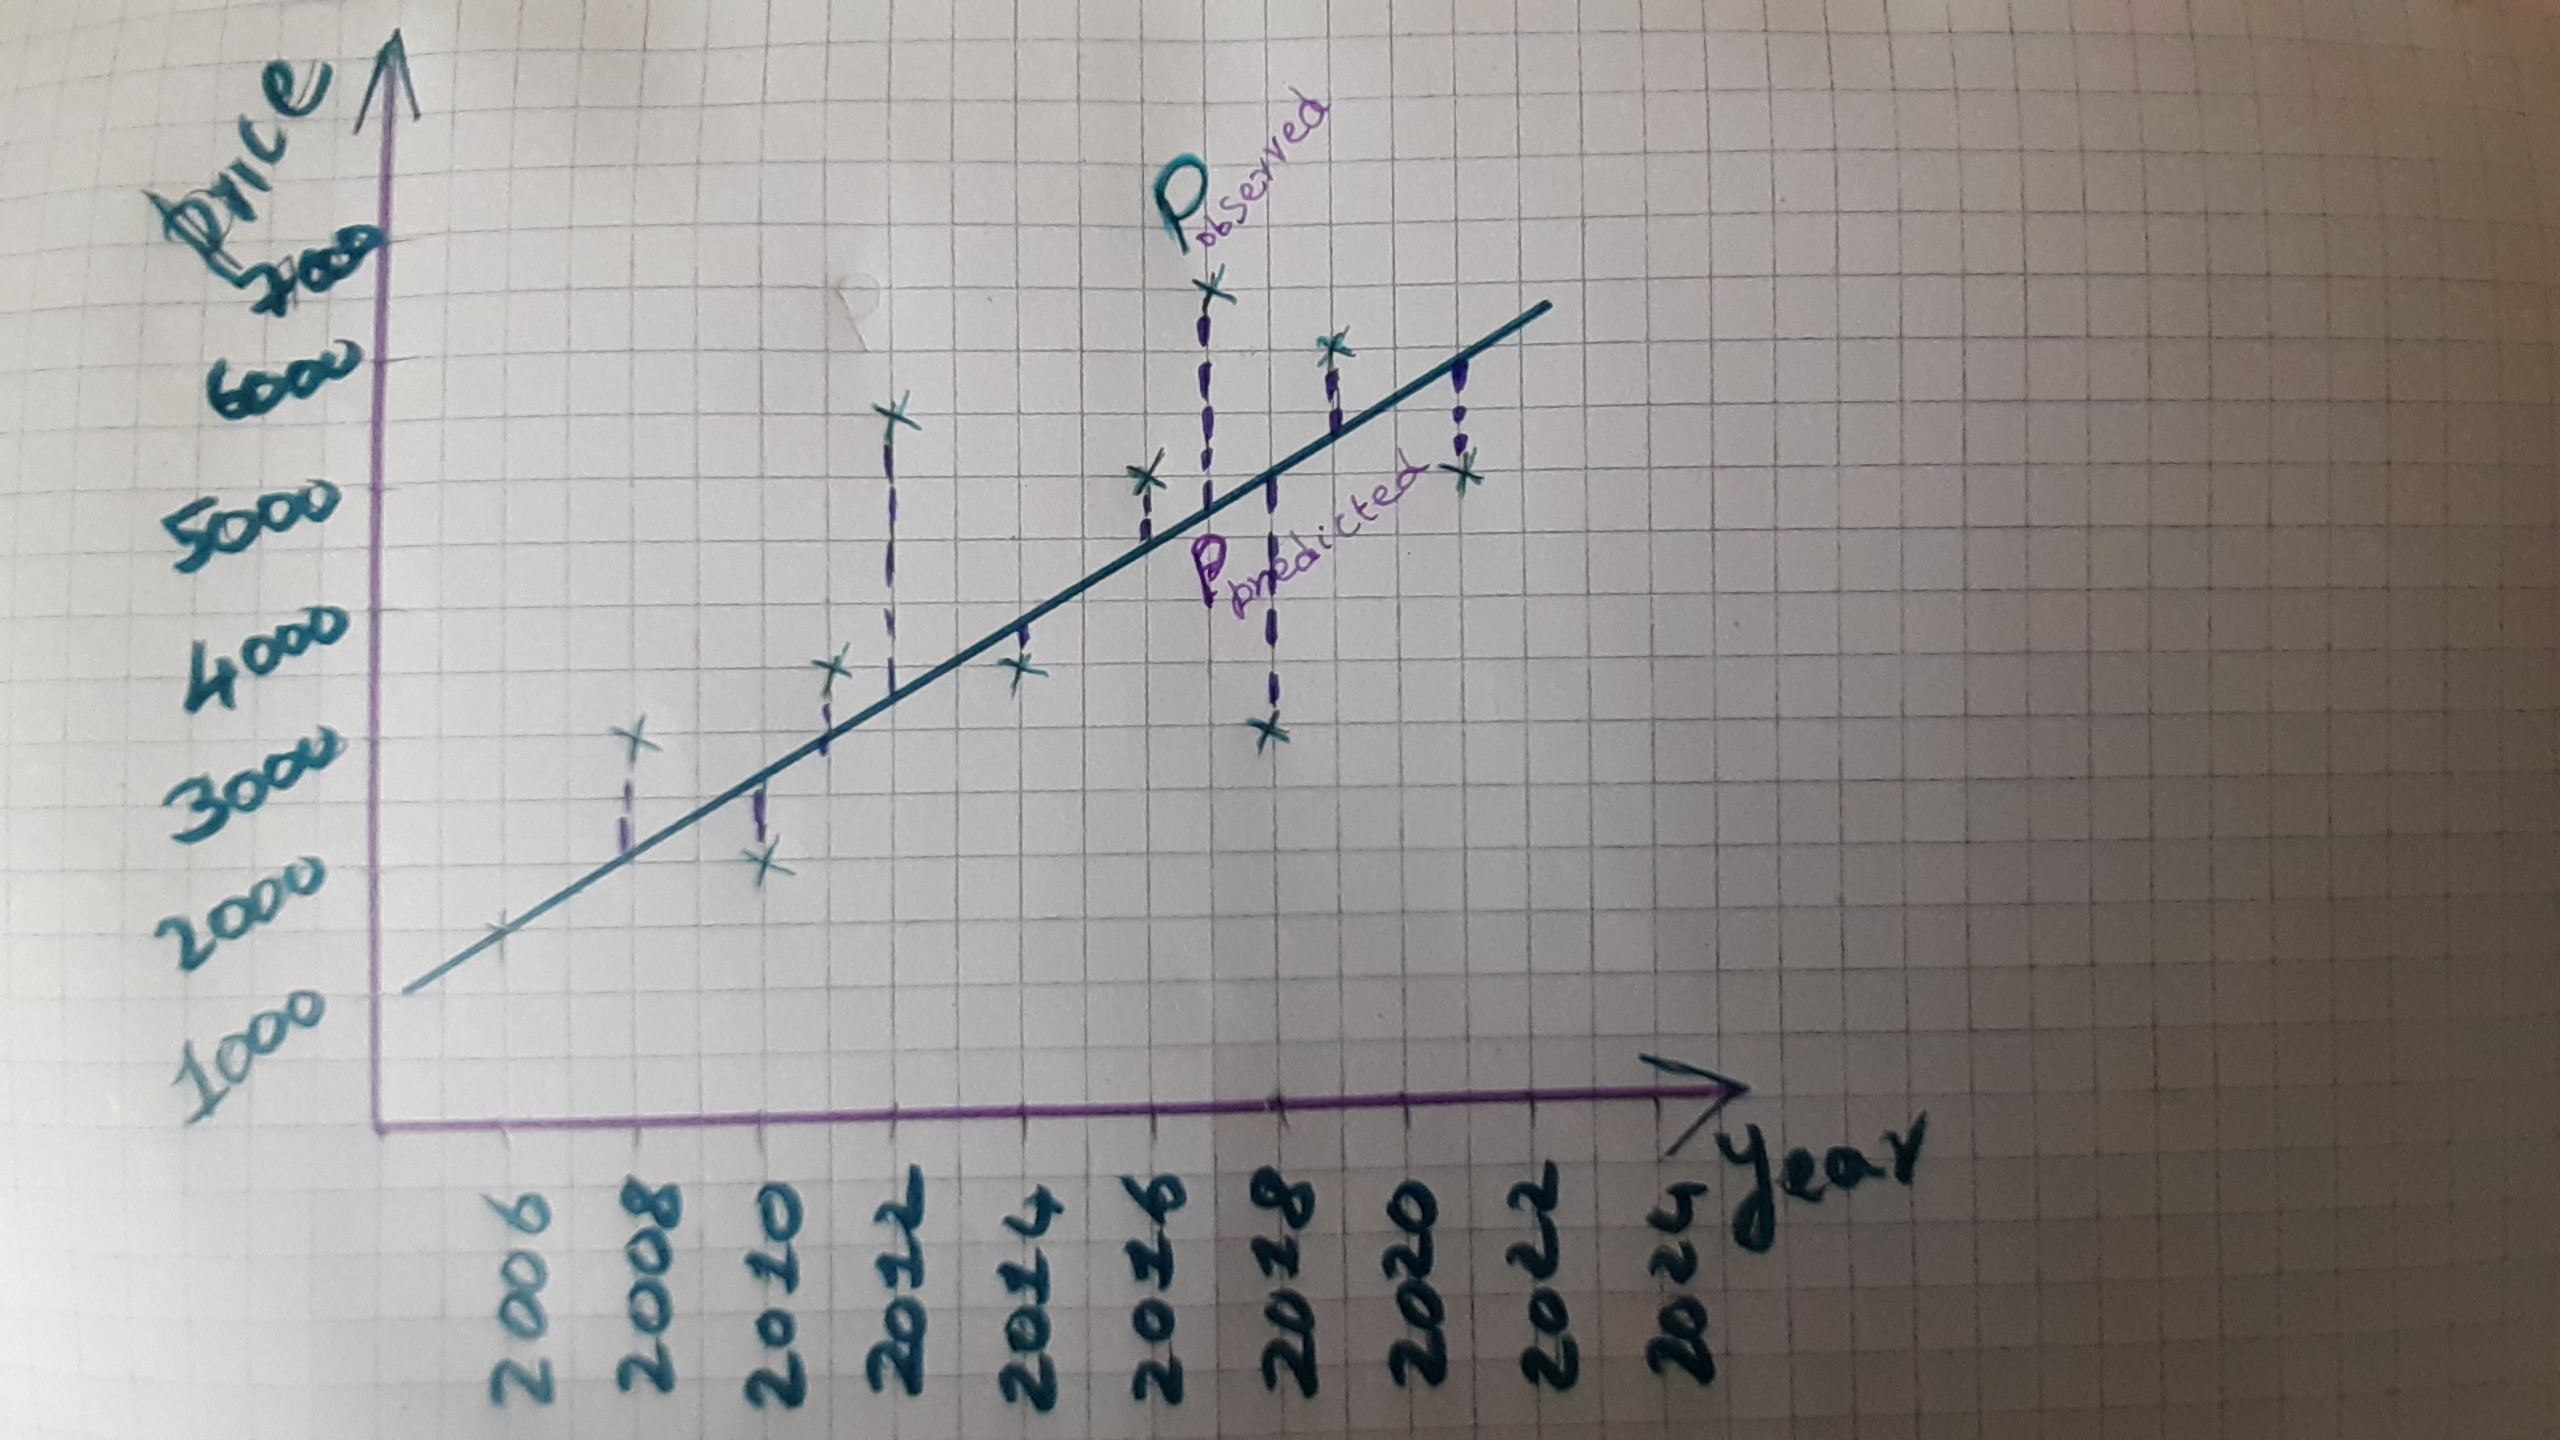 price
7000
6000
5000
4000
3000
2000
1000
Pobserved
Ppredicted
2006
2008
2010
2012
2014
2016
2018
2020
2022
2024
year